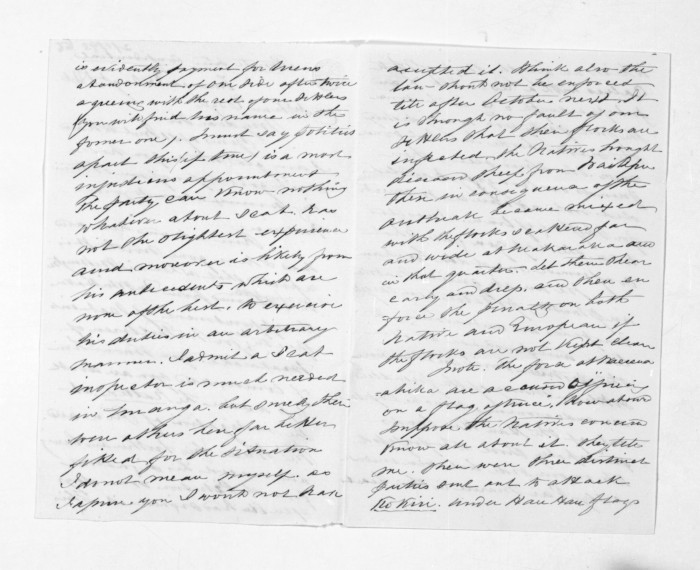 is evidently payment for Owens
abandonment of our side after twice
agreeing with the rest of our settlers
(you will find his name in the
former one). I must say politics
apart this (if true) is a most
injudicious appointment
The party can know nothing
whatever about Scab has
not the slightest experience
and moreover is likely from
his antecedents which are
none of the best, to exercise
his duties in an arbitrary
manner. I admit a Scab
inspector is much needed
in but surely there
were others here far better
fitted for the situation
I do not mean myself as
I assure you I would not have
accepted it. I think also the
law should not be enforced
till after October next. It
is through no fault of our
settlers that their flocks are
infected. the Natives brought
diseased sheep from
then in consequence of the
outbreak became mixed
with the flocks scattered far
and wide at and
in that quarter. let them shear
early and dip, and then en
force the penalty on both
Native and European if
the flocks are not kept clean
Note. The for a at
are a
on a flag of truce, how about
suppose the Natives concern
know all about it. they tell
me. there were three distinct
parties sent out to attack
under Hau Hau flags